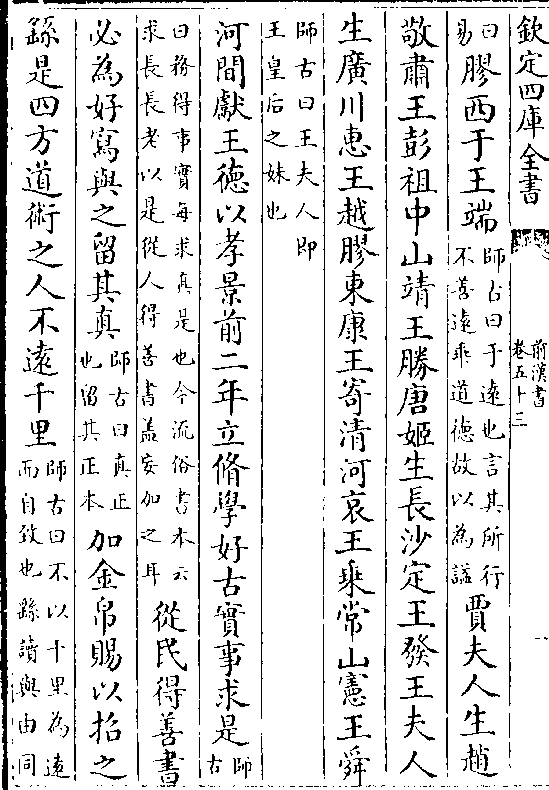 欽定四庫全書
前漢書
卷五十三
一
曰易膠西于王端師古曰于遠也言其所行不善遠乖道德故以為諡賈夫人生趙
敬肅王彭祖中山靖王勝唐姬生長沙定王發王夫人
生廣川惠王越膠東康王寄清河哀王乘常山憲王舜
師古曰王夫人即王皇后之妹也
河間獻王徳以孝景前二年立脩學好古實事求是師古
曰務得事實每求真是也今流俗書本云求長長老以是從人得善書蓋妄加之耳從民得善書
必為好寫與之留其真師古曰真正也留其正本加金帛賜以招之
繇是四方道術之人不遠千里師古曰不以千里為遠而自致也繇讀與由同